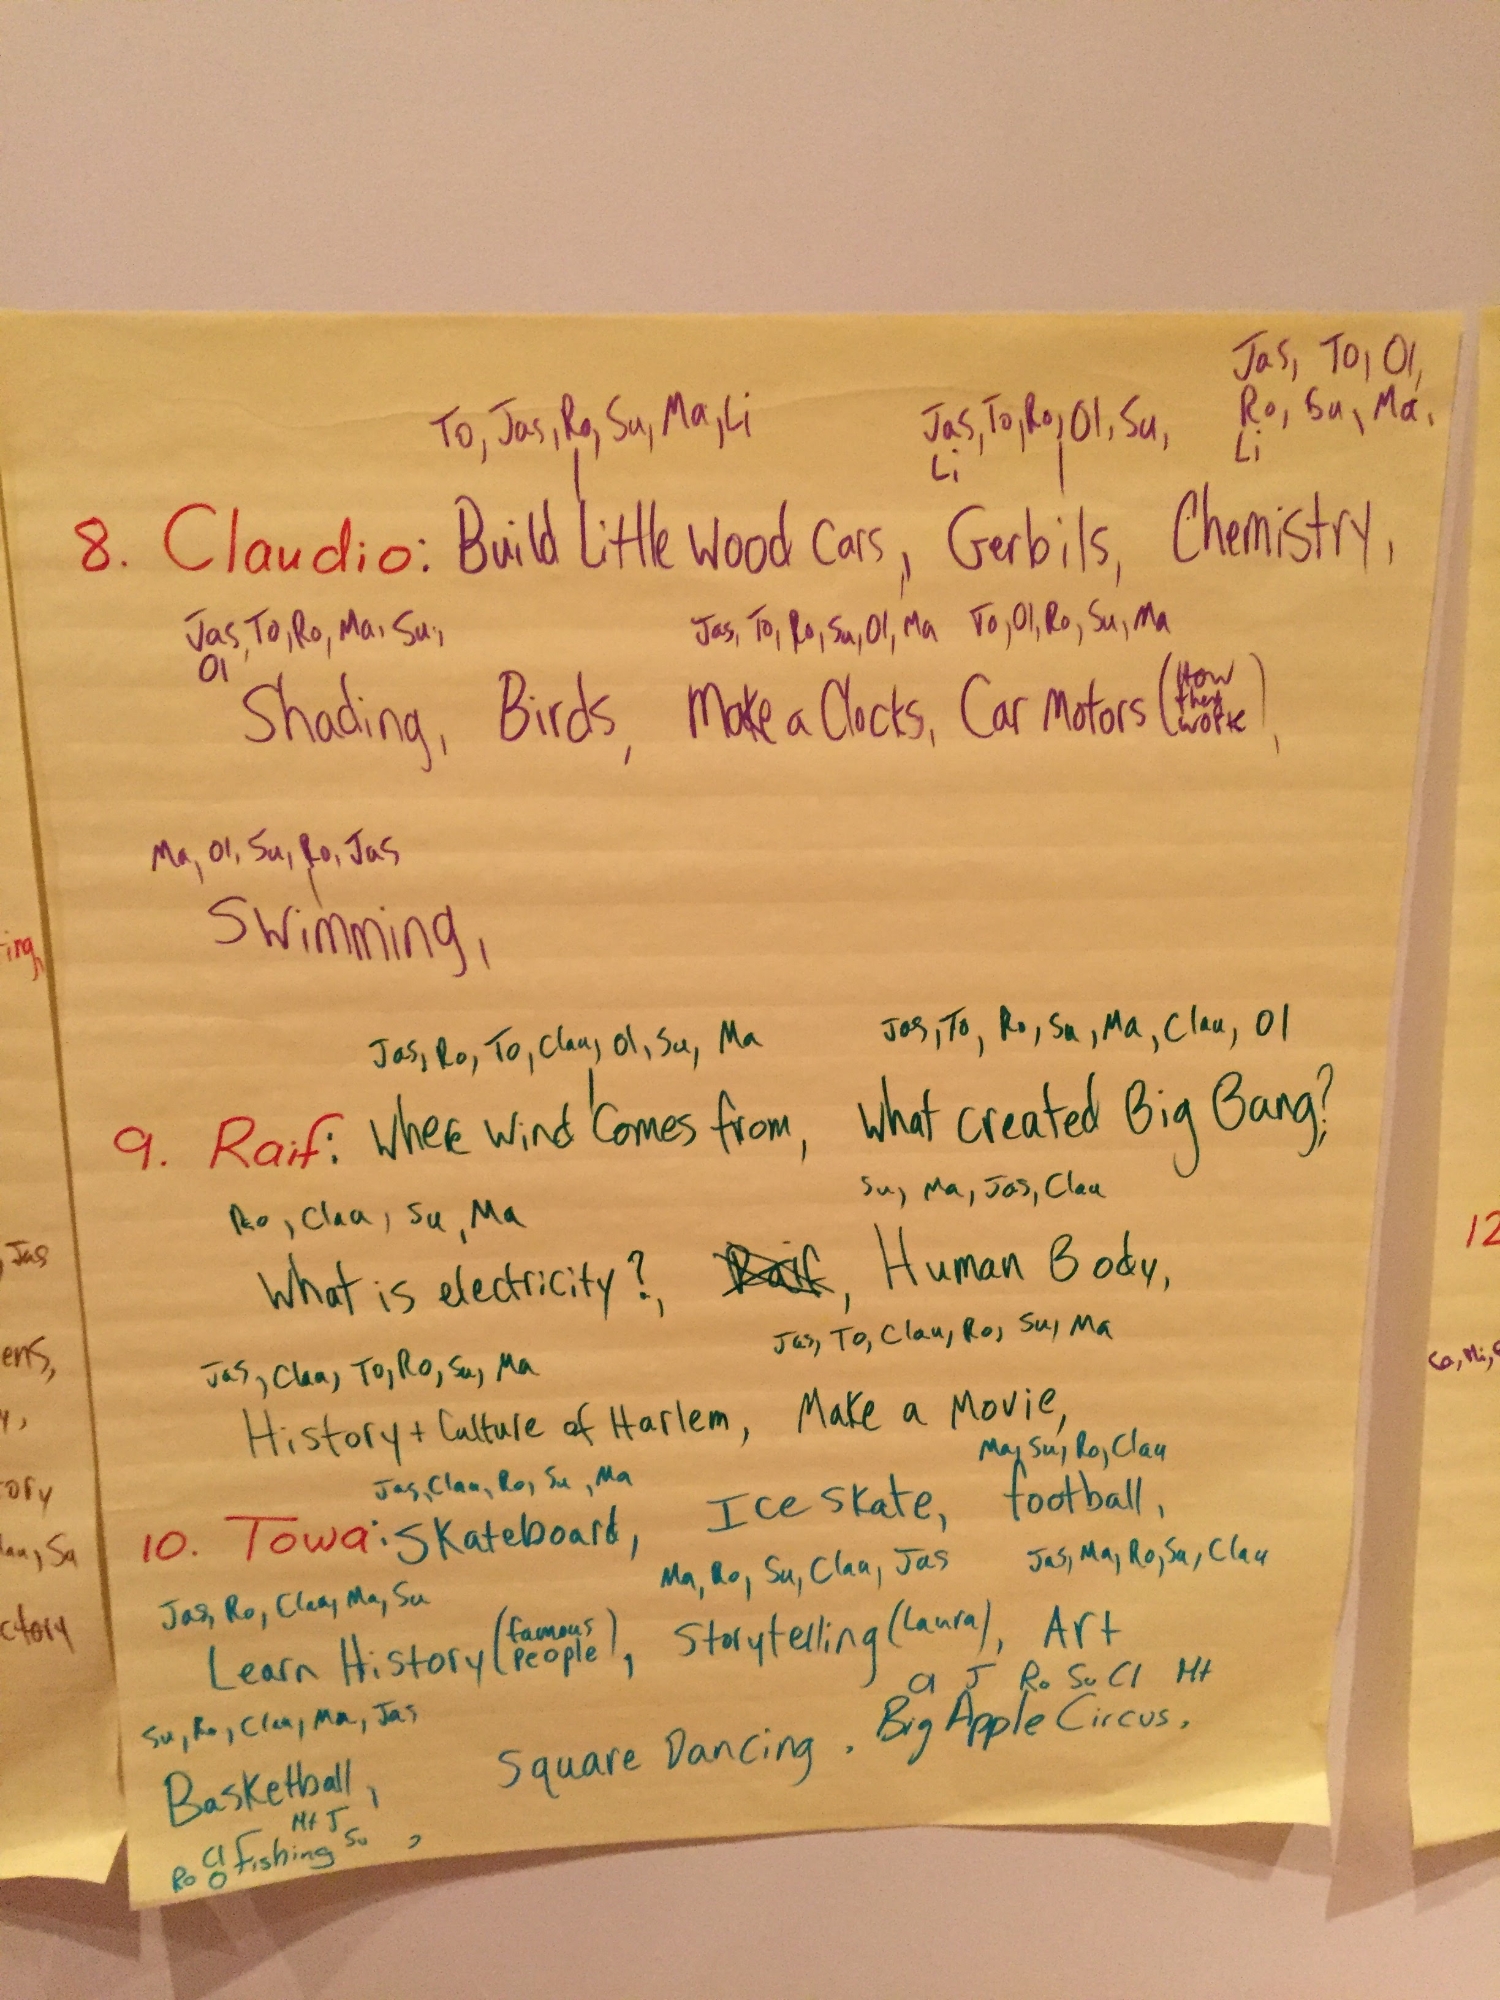 Jas, To, Ol,
To, Jas, Ro, Su, Ma, Li
Jas, To, Ro, Ol, Su,
Ro, Su, Ma,
Li
Li
8. Claudio: Build Little Wood Cars, Gerbils, Chemistry,
Jas, To, Ro, Ma, Su,
Jas, To, Ro, Su, Ol, Ma
To, Ol, Ro, Su, Ma
Ol
Shading, Birds, Make a Clocks, Car Motors (How they work),
Ma, Ol, Su, Ro, Jas
Swimming,
ing,
Jas, Ro, To, Clau, Ol, Su, Ma
Jas, To, Ro, Su, Ma, Clau, Ol
9. Raif: Where Wind Comes from, What created Big Bang?,
Ro, Clau, Su, Ma
Su, Ma, Jas, Clau
12
, Jas
What is electricity?, Raif, Human Body,
Jas, Clau, To, Ro, Su, Ma
Jas, To, Clau, Ro, Su, Ma
ens,
History + Culture of Harlem, Make a Movie,
Jas, Clau, Ro, Su, Ma
Ma, Su, Ro, Clau
ory
10. Towa: Skateboard, Ice skate, football,
Jas, Ro, Clau, Ma, Su
Ma, Ro, Su, Clau, Jas
Jas, Ma, Ro, Su, Clau
ctory
Learn History (famous people), Storytelling (Laura), Art
Su, Ro, Clau, Ma, Jas
J Ro Su Cl Mt
Basketball, Square Dancing, Big Apple Circus,
Mt J
Ro Cl O Fishing Su ,